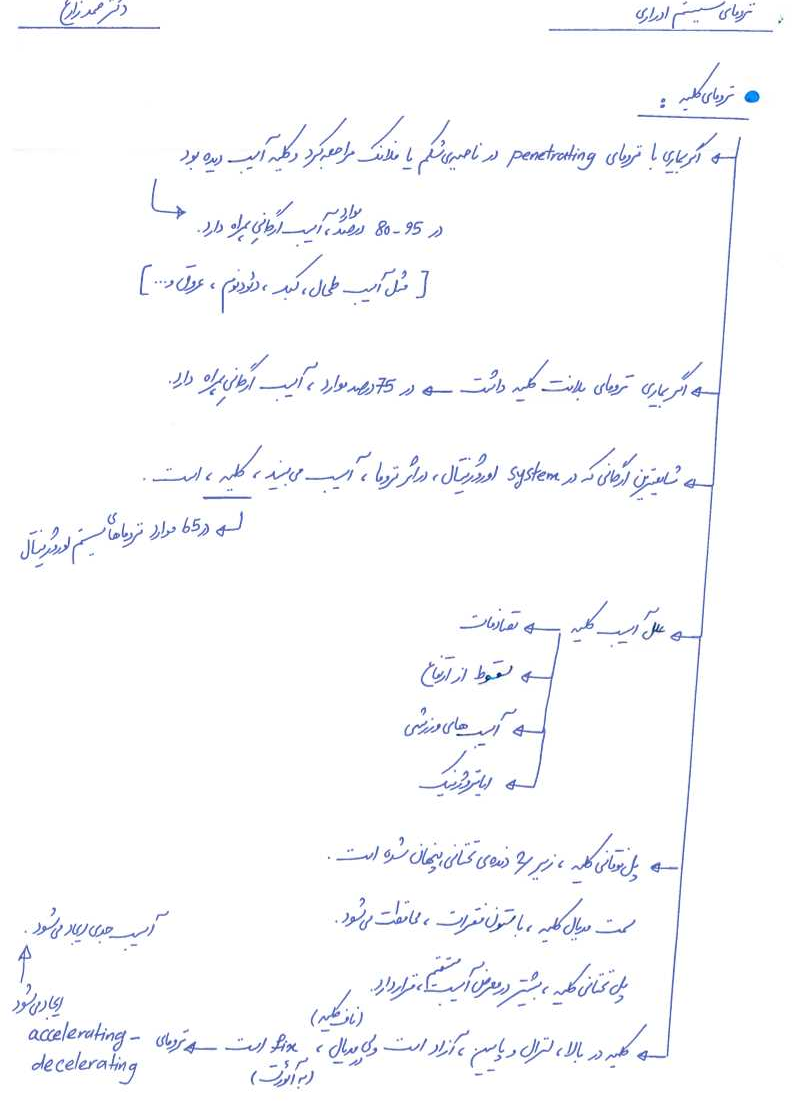 ترومای سیستم ادراری
دکتر محمد زارع
ترومای کلیه :
اگر بیماری با ترومای penetrating در ناحیه‌ی شکم یا فلانک مراجعه کرد و کلیه آسیب دیده بود
در 80-95 درصد موارد، آسیب ارگانی همراه دارد.
[مثل آسیب طحال، کبد، دئودنوم، عروق و...]
اگر بیماری ترومای بلانت کلیه داشت ← در 75 درصد موارد، آسیب ارگانی همراه دارد.
شایعترین ارگانی که در system اوروژنیتال، در اثر تروما، آسیب می‌بیند، کلیه، است.
← در 65 موارد تروماهای سیستم اوروژنیتال
علل آسیب کلیه ← تصادفات
← سقوط از ارتفاع
← آسیب های ورزشی
← ایاتروژنیک
← پل فوقانی کلیه، زیر 2 دنده‌ی تحتانی پنهان شده است.
سمت مدیال کلیه، با ستون فقرات، محافظت می‌شود.
پل تحتانی کلیه، بیشتر در معرض آسیب مستقیم، قرار دارد.
← کلیه در بالا، لترال و پایین، آزاد است ولی در مدیال (ناف کلیه)، fix است (به آئورت) ← ترومای
accelerating-
decelerating
ایجاد می‌شود
آسیب جدی ایجاد می‌شود.